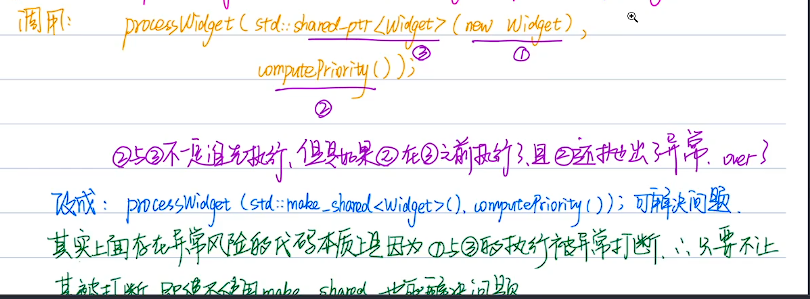 调用: processWidget(std::shared_ptr<Widget>(new Widget),
③ ①
computePriority());
②
②与③不一定谁先执行,但是如果②在③之前执行了,且②还抛出了异常,over了
改成: processWidget(std::make_shared<Widget>(), computePriority()); 可解决问题.
其实上面存在异常风险的代码本质上是因为①与③的执行被异常打断, ∴只要不让
其被打断,即使不使用make_shared 也可解决问题